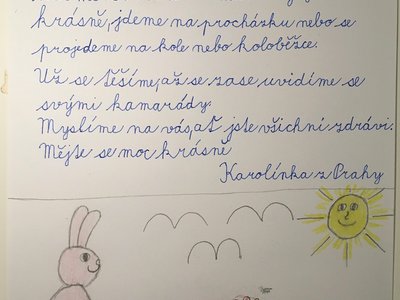 krásně, jdeme na procházku nebo se
projedeme na kole nebo koloběžce.
Už se těšíme, až se zase uvidíme se
svými kamarády.
Myslíme na vás, ať jste všichni zdrávi.
Mějte se moc krásně
Karolínka z Prahy